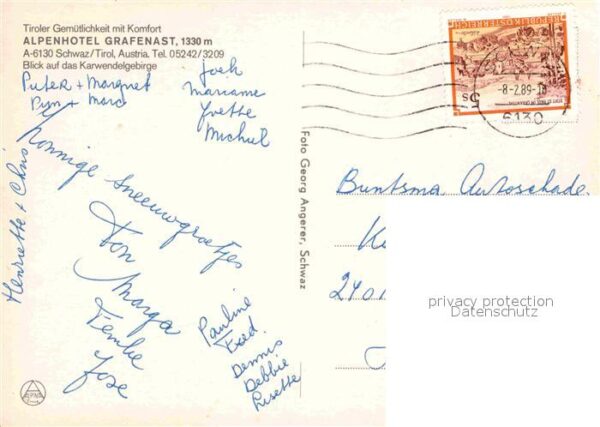 Tiroler Gemütlichkeit mit Komfort
ALPENHOTEL GRAFENAST, 1330 m
A-6130 Schwaz/Tirol, Austria. Tel. 05242/3209
Blick auf das Karwendelgebirge
Peter + Margret
Pym + Marc
Joch
Marianne
Yvette
Michiel
Henriette + Chris
zonnige sneeuwgroetjes
Ton
Marga
Femke
Jose
Pauline
Fred
Dennis
Debbie
Lisette
Foto Georg Angerer, Schwaz
REPUBLIK ÖSTERREICH
5s
-8-2.89-18
6130
Buntsma Autoschade
2401
privacy protection
Datenschutz